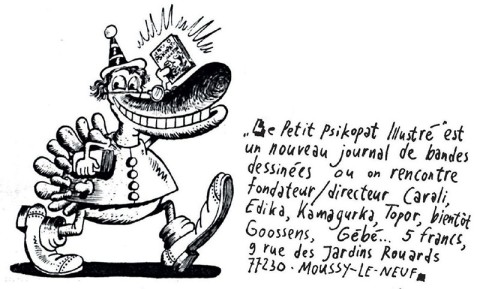 „Le Petit Psikopat Illustré" est
un nouveau journal de bandes
dessinées où on rencontre
fondateur/directeur Carali,
Edika, Kamagurka, Topor, bientôt
Goossens, Gébé... 5 francs,
9 rue des Jardins Rouards
77230 - MOUSSY-LE-NEUF